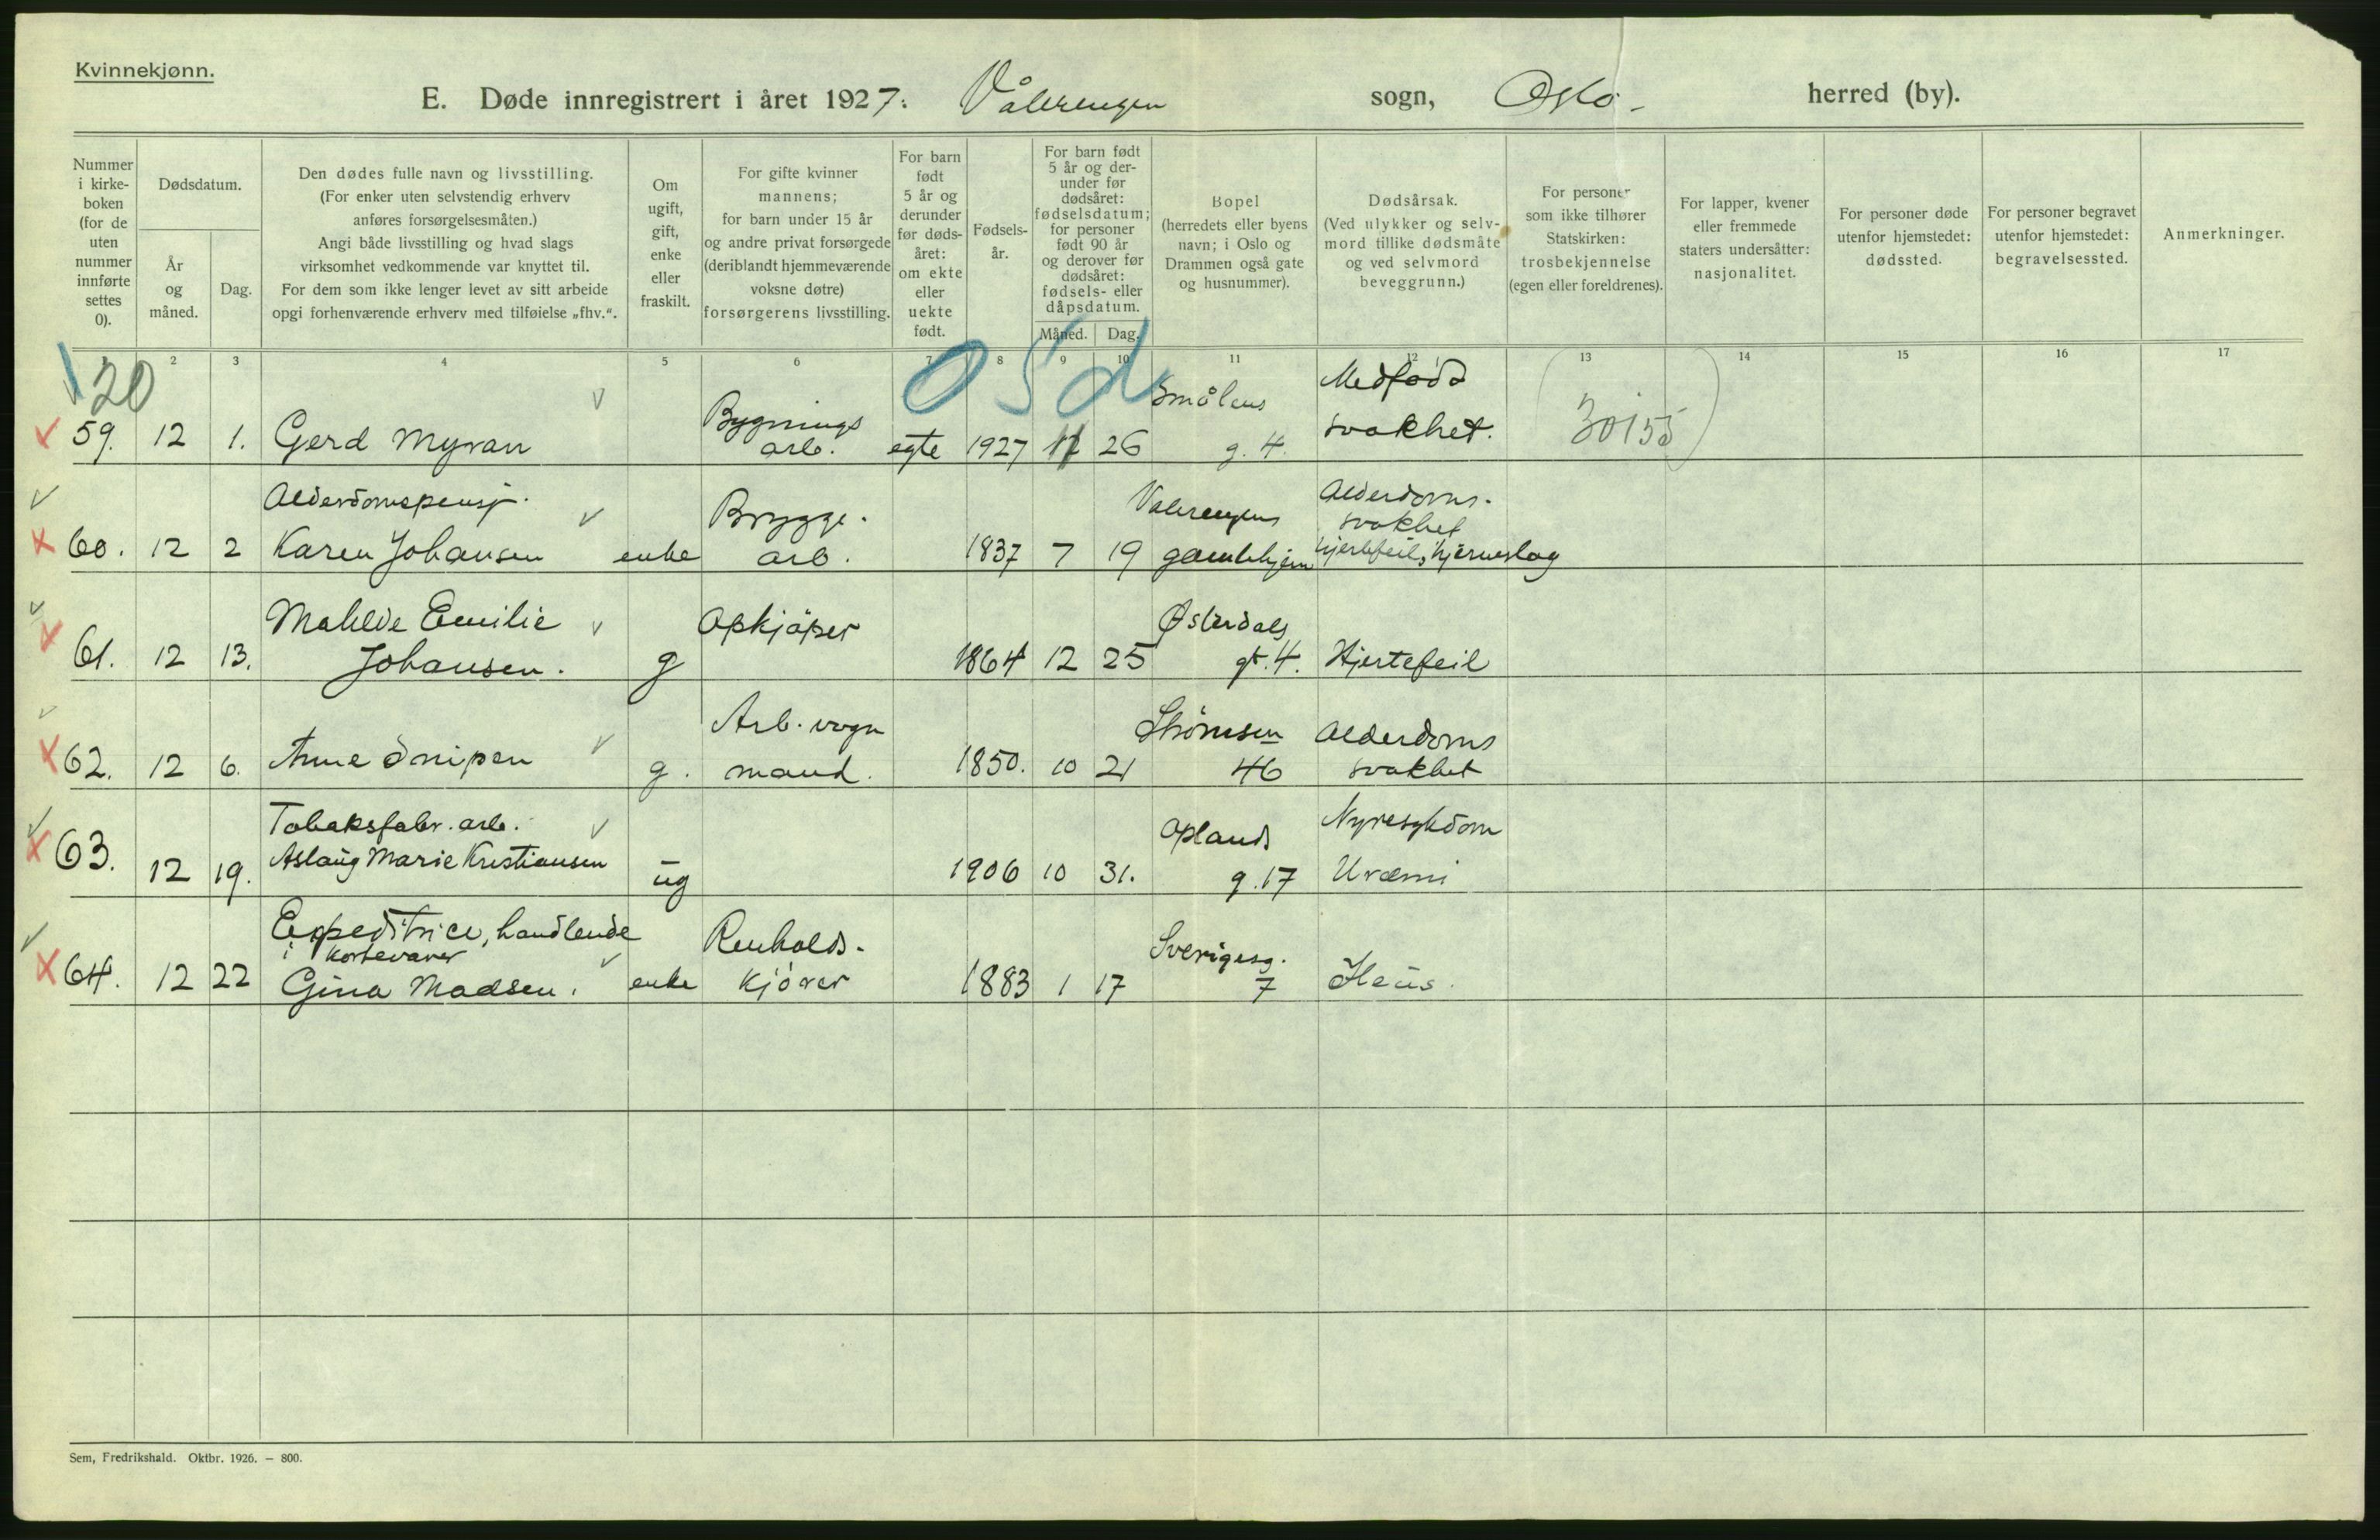 Kvinnekjønn.
E. Døde innregistrert i året 1927. Vålerengen sogn, Oslo herred (by).
Nummer i kirkeboken (for de uten nummer innførte settes 0).
Dødsdatum.
År og måned.
Dag.
Den dødes fulle navn og livsstilling.
(For enker uten selvstendig erhverv
anføres forsørgelsesmåten.)
Angi både livsstilling og hvad slags
virksomhet vedkommende var knyttet til.
For dem som ikke lenger levet av sitt arbeide
opgi forhenværende erhverv med tilføielse „fhv.“.
Om ugift, gift, enke eller fraskilt.
For gifte kvinner
mannens;
for barn under 15 år
og andre privat forsørgede
(deriblandt hjemmeværende
voksne døtre)
forsørgerens livsstilling.
For barn født 5 år og derunder før dødsåret: om ekte eller uekte født.
Fødselsår.
For barn født 5 år og derunder før dødsåret: fødselsdatum; for personer født 90 år og derover før dødsåret: fødsels- eller dåpsdatum.
Måned. Dag.
Bopel
(herredets eller byens
navn; i Oslo og
Drammen også gate
og husnummer).
Dødsårsak.
(Ved ulykker og selv-
mord tillike dødsmåte
og ved selvmord
beveggrunn.)
For personer
som ikke tilhører
Statskirken:
trosbekjennelse
(egen eller foreldrenes).
For lapper, kvener
eller fremmede
staters undersåtter:
nasjonalitet.
For personer døde
utenfor hjemstedet:
dødssted.
For personer begravet
utenfor hjemstedet:
begravelsessted.
Anmerkninger.
1 2 3 4 5 6 7 8 9 10 11 12 13 14 15 16 17
120
Smålens Medfødt
59. 12 1. Gerd Myran Bygnings arb. egte 1927 11 26 g. 4. svakhet. 30155
Alderdomspensj. Brygge- Valerengens Alderdoms-
svakhet
60. 12 2 Karen Johansen enke arb. 1837 7 19 gamlehjem hjertefeil, hjerneslag
Mahlde Emilie Opkjøper Østerdals
61. 12 13. Johansen. g 1864 12 25 gt. 4. Hjertefeil
Arb. vogn Strømsvn Alderdoms
62. 12 6. Anne Snipen g. mand. 1850. 10 21 46 svakhet
Tobaksfabr. arb. Oplands Nyresykdom
63. 12 19. Aslaug Marie Kristiansen ug 1906 10 31. g. 17 Uræmi
Expeditrice, handlende Renholds- Sverigesg.
i kortevarer
64. 12 22 Gina Madsen. enke kjører 1883 1 17 7 Ileus.
Sem, Fredrikshald. Oktbr. 1926. – 800.